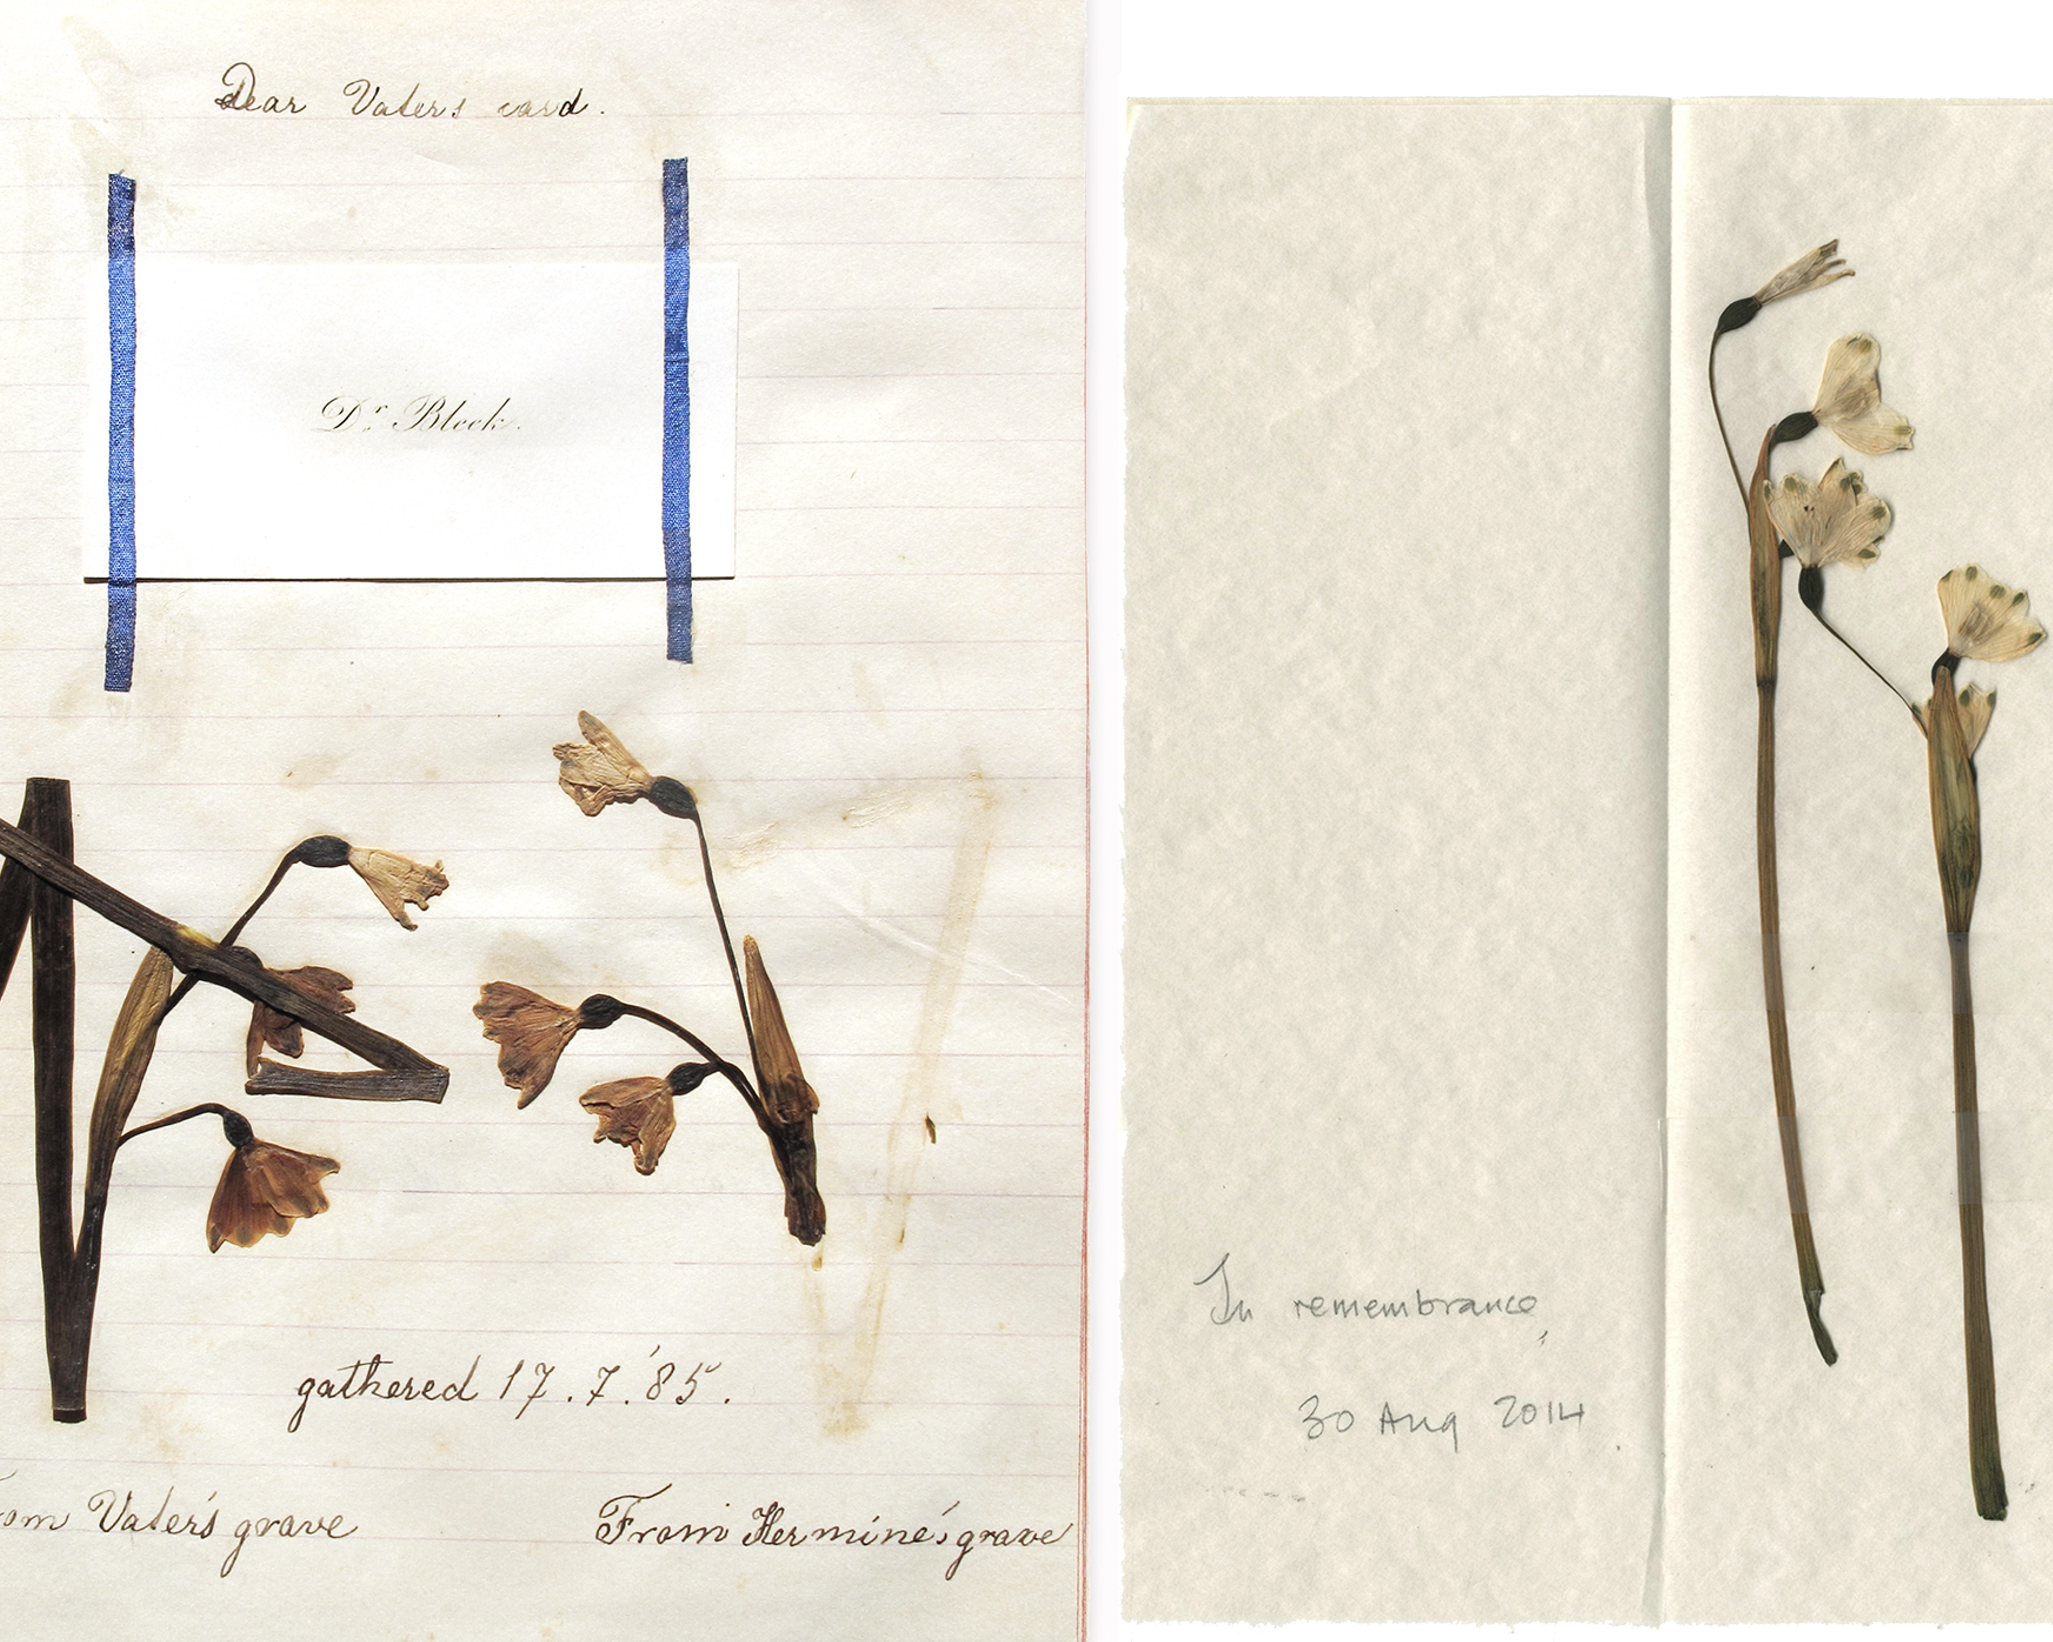 Dear Vater's card.
Dr. Bleek.
gathered 17.7.'85.
om Vater's grave
From Hermine's grave
In remembrance
30 Aug 2014